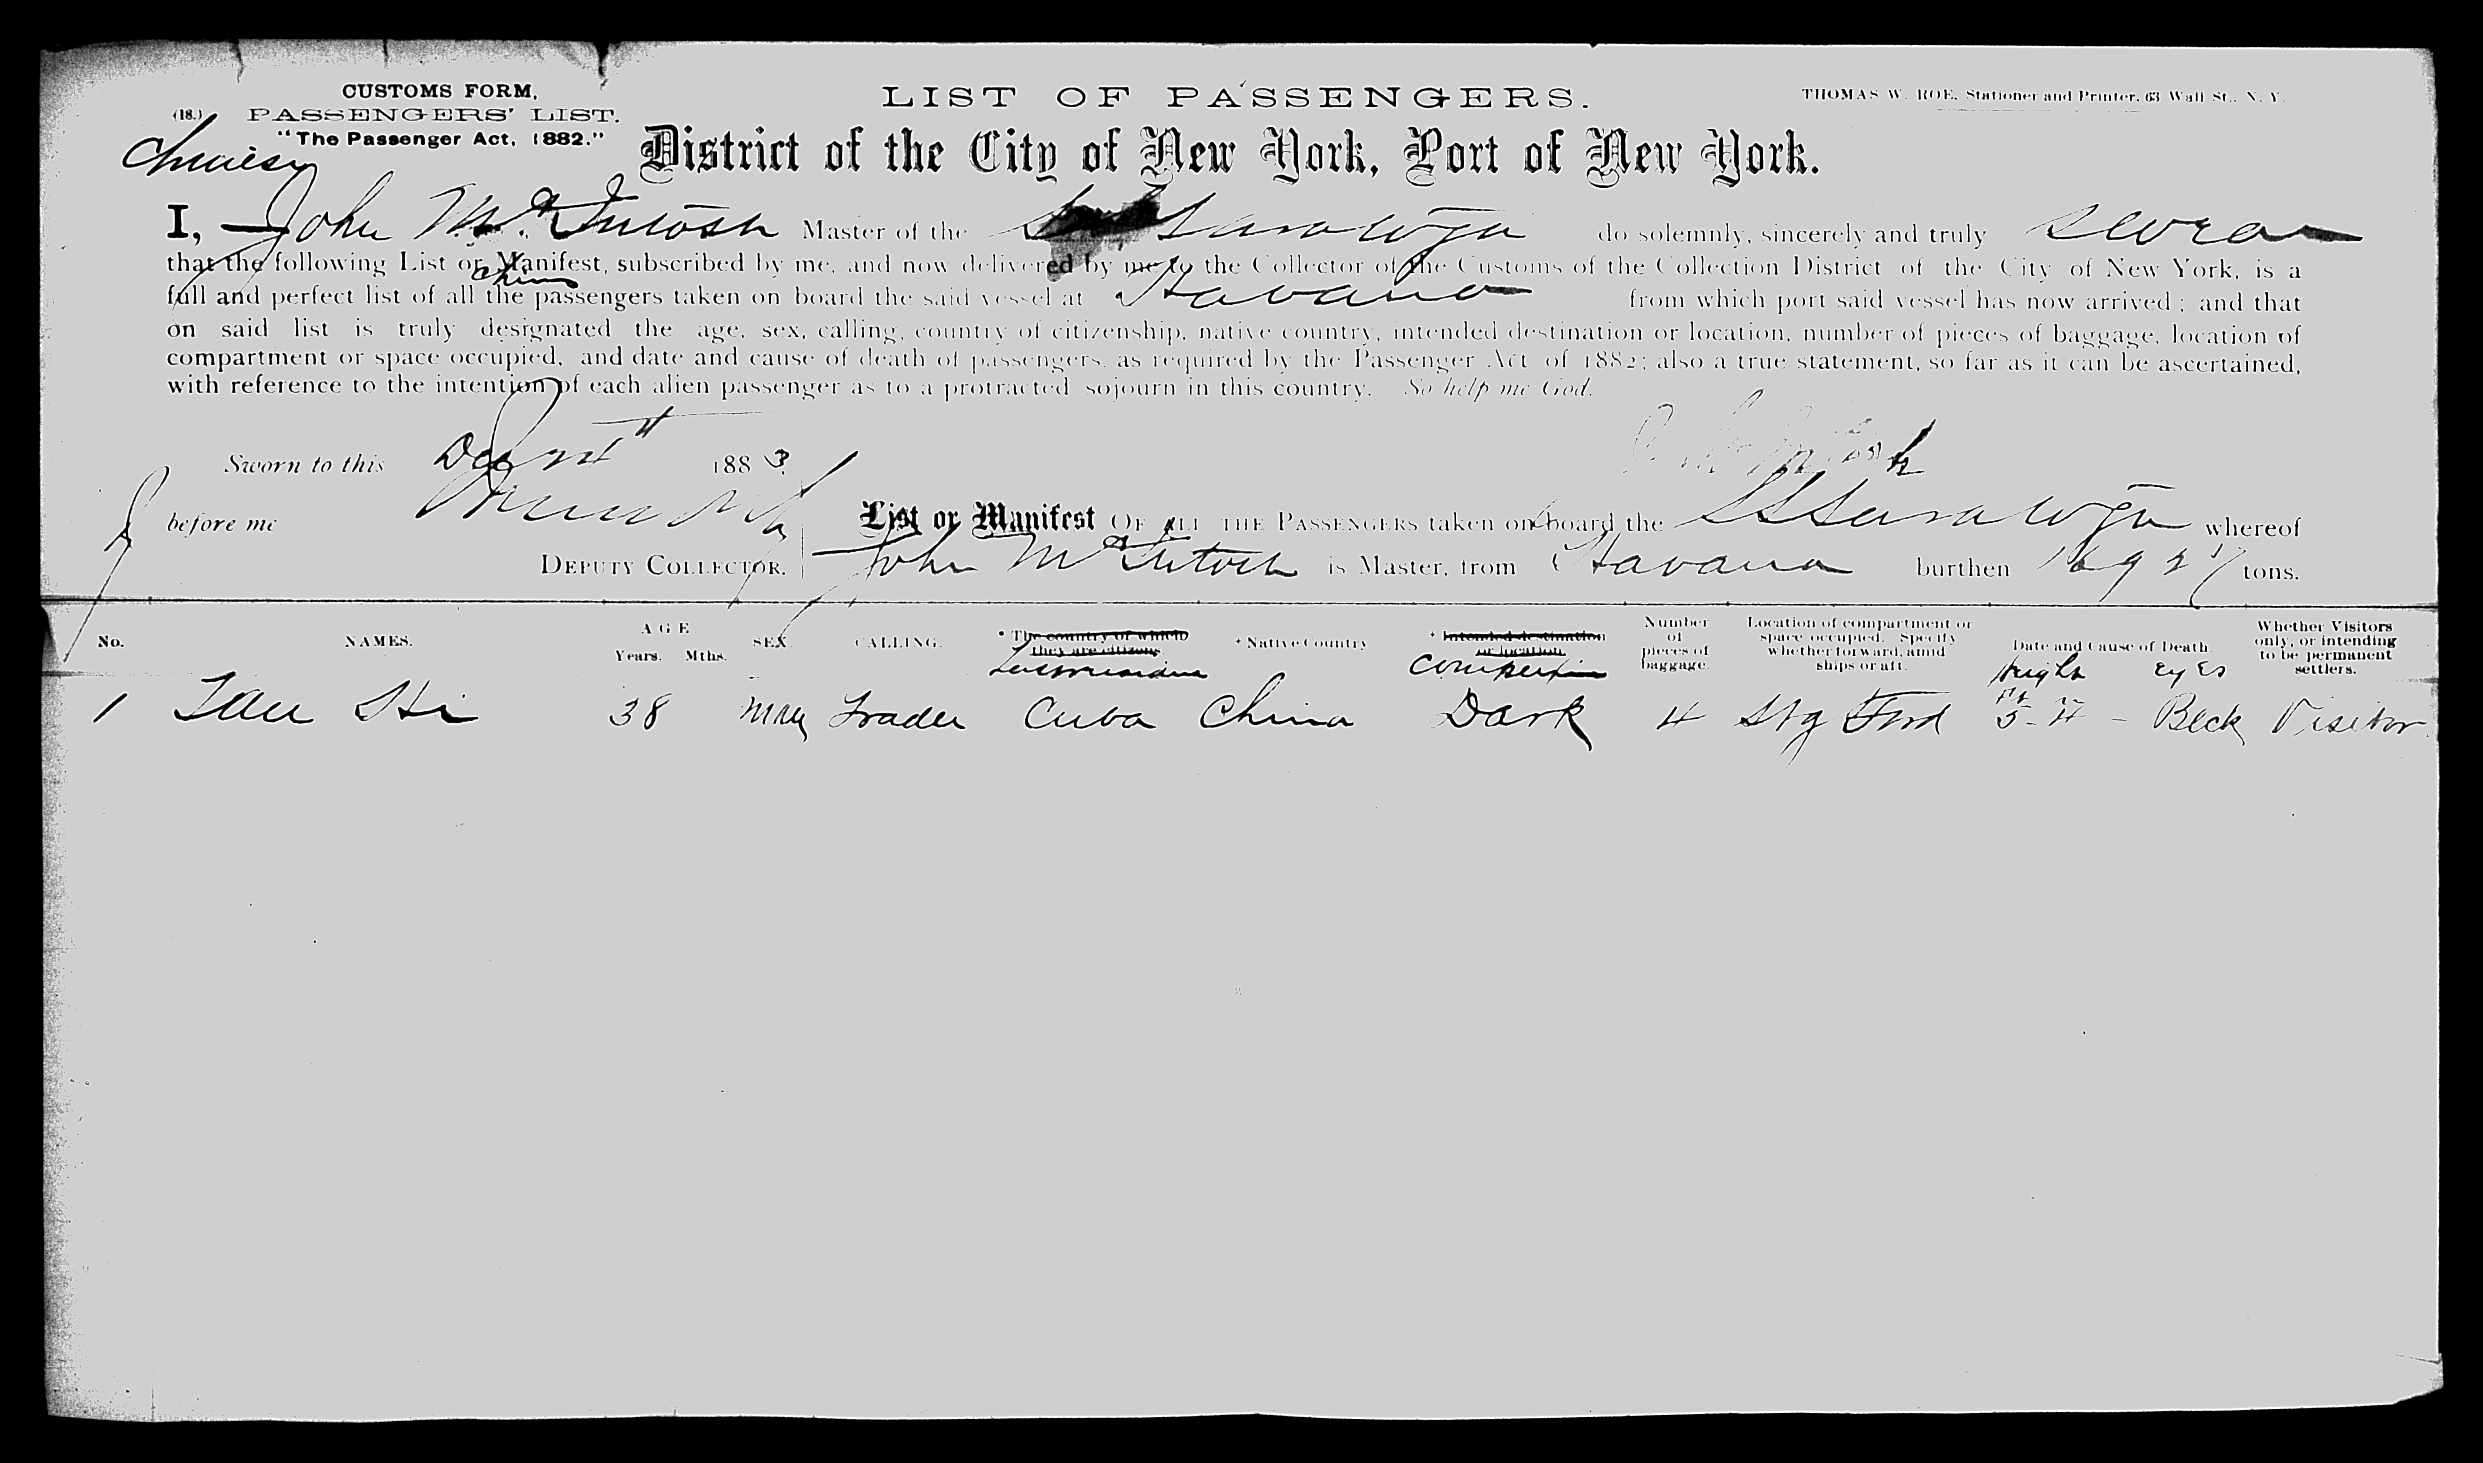 CUSTOMS FORM,
(18.) PASSENGERS' LIST.
"The Passenger Act, 1882."
LIST OF PASSENGERS.
THOMAS W. ROE, Stationer and Printer, 63 Wall St., N. Y.
District of the City of New York, Port of New York.
I, John McIntosh Master of the SS Saratoga do solemnly, sincerely and truly swear
that the following List or Manifest, subscribed by me, and now delivered by me to the Collector of the Customs of the Collection District of the City of New York, is a
full and perfect list of all the passengers taken on board the said vessel at Havana from which port said vessel has now arrived; and that
on said list is truly designated the age, sex, calling, country of citizenship, native country, intended destination or location, number of pieces of baggage, location of
compartment or space occupied, and date and cause of death of passengers, as required by the Passenger Act of 1882; also a true statement, so far as it can be ascertained,
with reference to the intention of each alien passenger as to a protracted sojourn in this country. So help me God.
Sworn to this 1883
before me
DEPUTY COLLECTOR.
List or Manifest OF ALL THE PASSENGERS taken on board the SS Saratoga whereof
John McIntosh is Master, from Havana burthen tons.
No. NAMES. AGE Years. Mths. SEX CALLING. * The country of which they are citizens * Native Country * Intended destination or location. Number of pieces of baggage. Location of compartment or space occupied. Specify whether forward, amid ships or aft. Date and Cause of Death. Whether Visitors only, or intending to be permanent settlers.
Height Eyes
1 38 Trader Cuba China Dark 4 Stg Fwd Blck Visitor